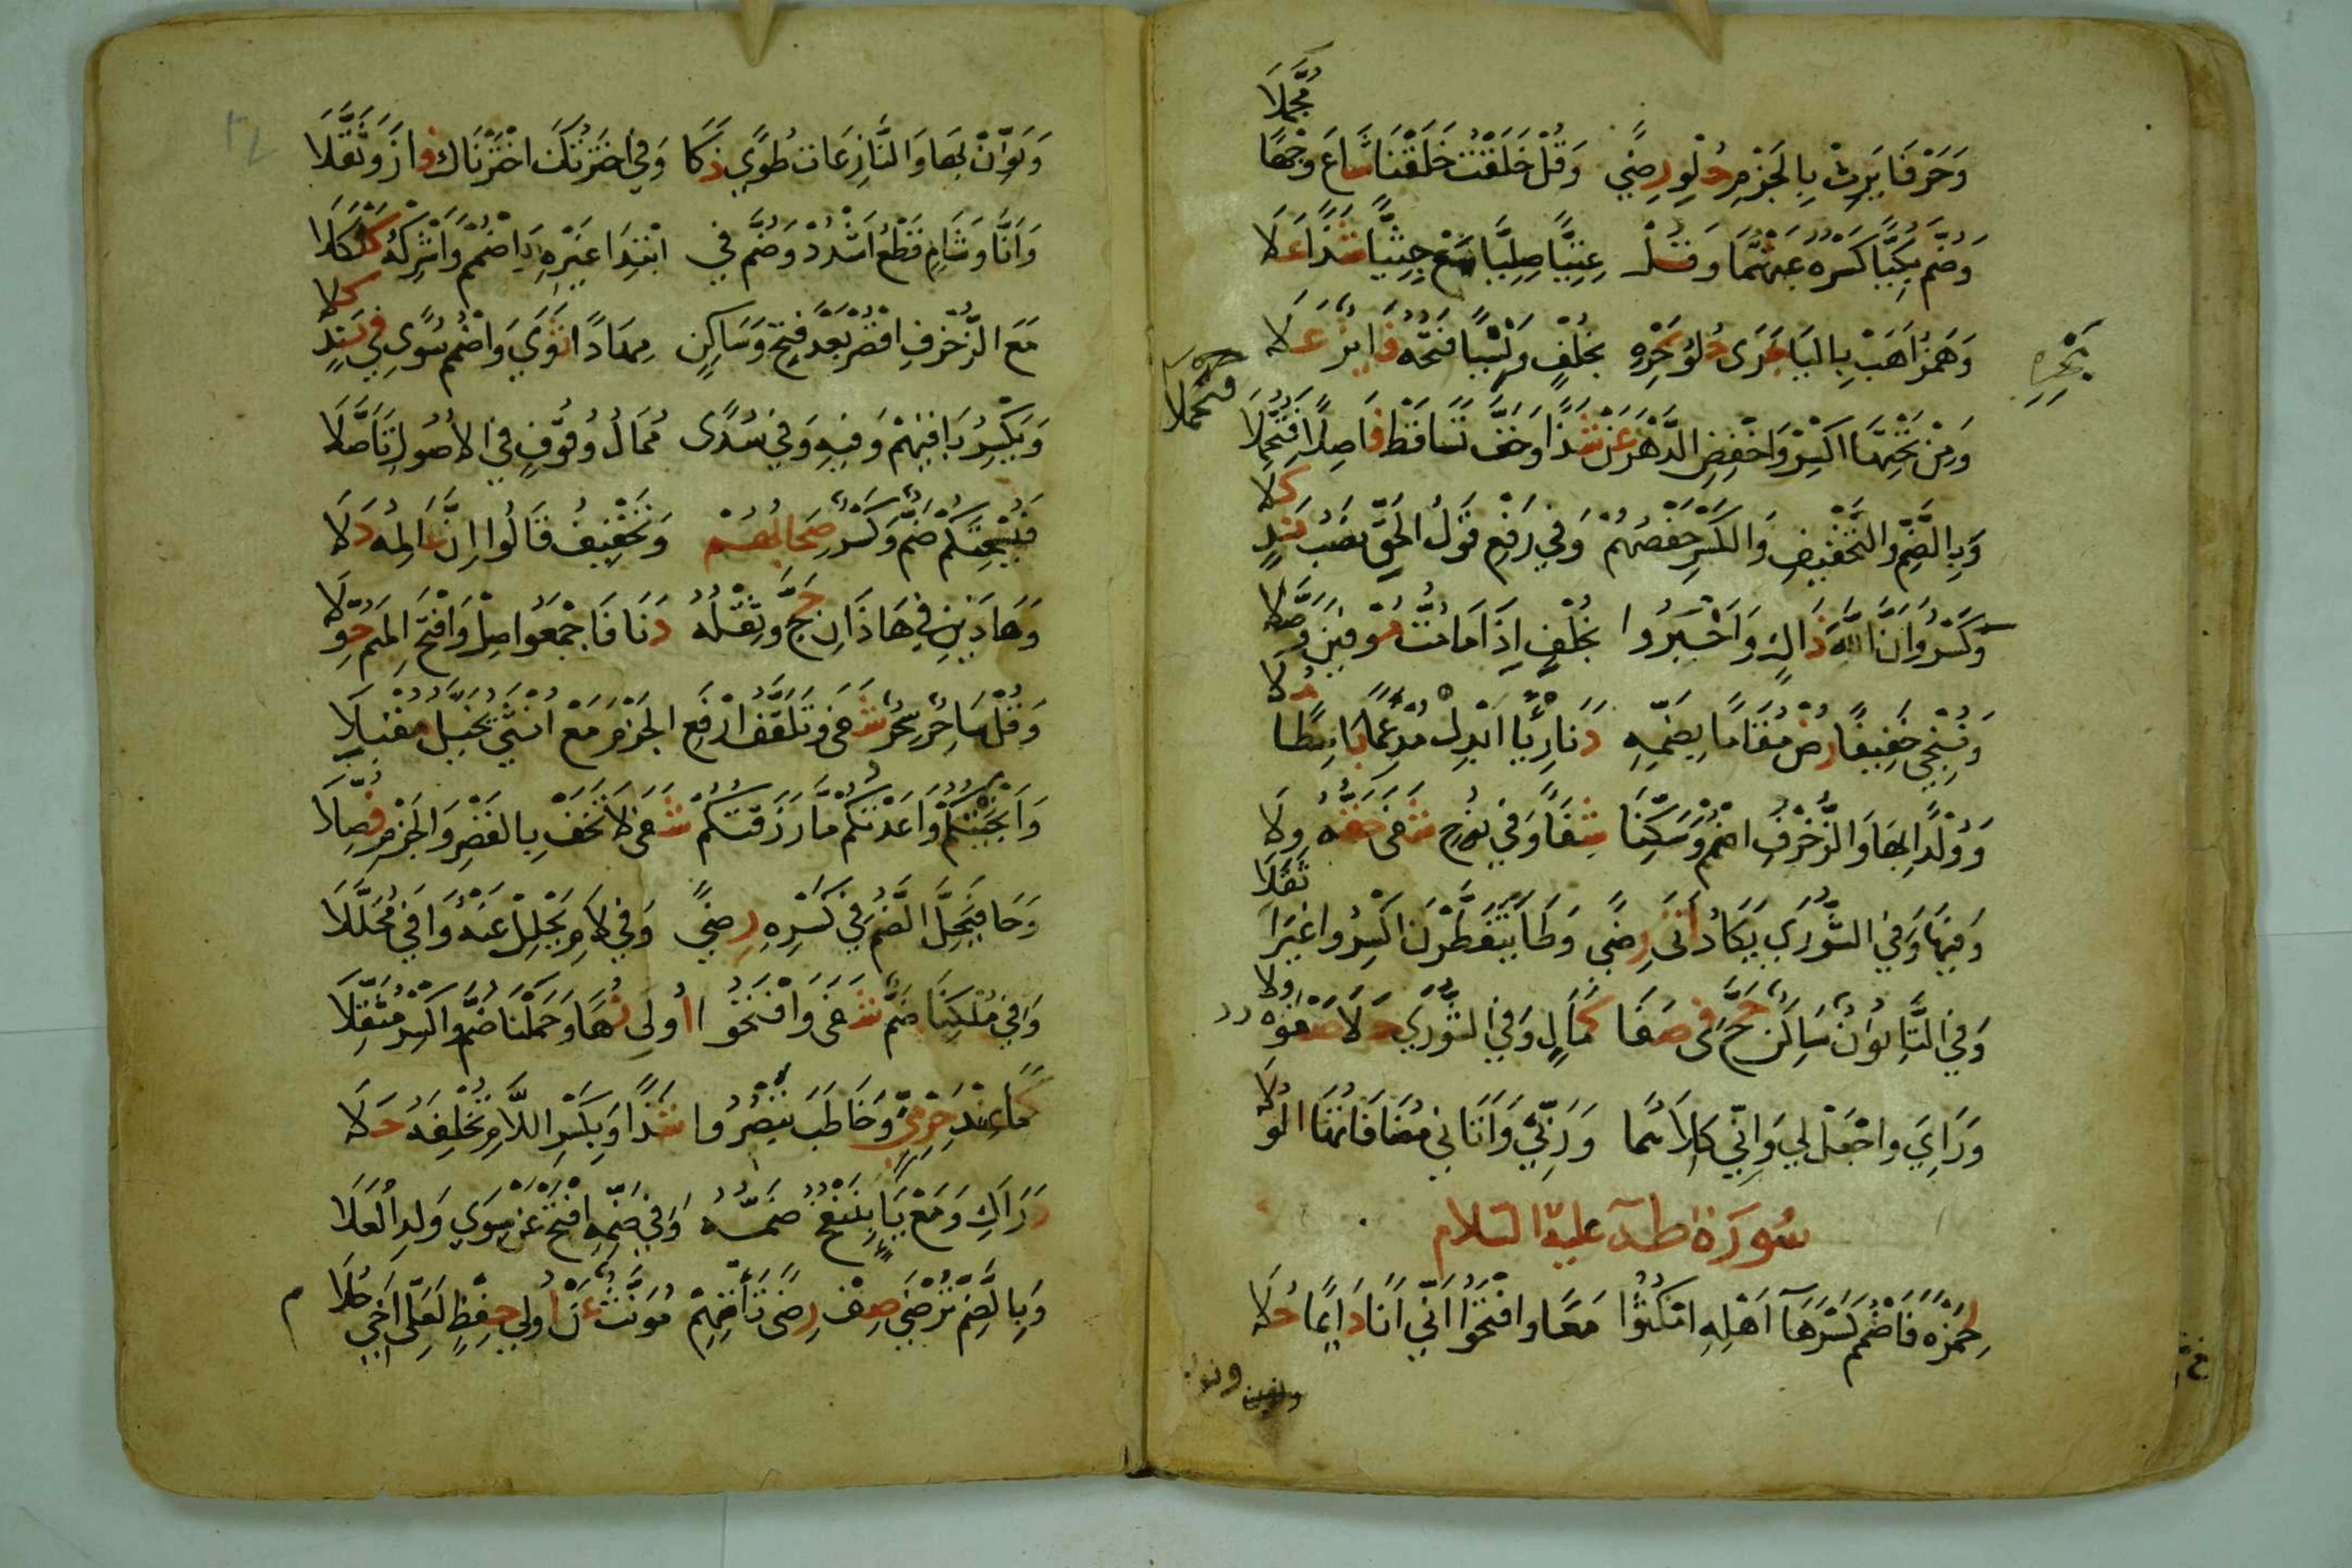 مُجَّمَلَا
وَحَرْفَا يَرِثْ بِالْجَزْمِ حُلْوِ رِضًى وَقُلْ خَلَقْتُ خَلَقْنَا شَاعَ وَجْهًا
وَضُمَّ بُكِيًّا كَسْرُهُ عَنْهُمَا وَقُلْ عِتِيًّا صِلِيًّا مَعْ جِثِيًّا شَذًا عَلَا
وَهَمْزُ أَهَبْ بِالْيَا جَرَى حُلْوُ بَحْرِهِ بِخُلْفٍ وَنَسْيًا فَتْحُهُ فَائِزٌ عَلَا
بَحْرِهِ
وَمِنْ تَحْتِهَا اكْسِرْ وَاخْفِضِ الدَّهْرَ عَنْ شَذًا وَخَفَّ تَسَاقَطْ فَاصِلًا فَتُحُمِّلَا
فتحملا
وَبِالضَّمِّ وَالتَّخْفِيفِ وَالْكَسْرِ حَفْصُهُمْ وَفِي رَفْعِ قَوْلُ الْحَقِّ نَصْبُ نَدٍ كَلَا
وَكَسْرُ وَأَنَّ اللَّهَ ذَاكٍ وَأَخْبَرُوا بِخُلْفٍ إِذَا مَا مُتُّ مُوفِينَ وُصَّلَا
وَنُنْجِي خَفِيفًا رُضْ مَقَامًا بِضَمِّهِ دَنَا رِئْيًا ابْدِلْ مُدْغِمًا بَاسِطًا مُلَا
وَوُلْدًا بِهَا وَالزُّخْرُفِ اضْمُمْ وَسَكِّنَا شِفَاءً وَفِي نُوحٍ شَفَى حَقُّهُ وِلَا
وَفِيهَا وَفِي الشُّورَى يَكَادُ أَتَى رِضًى وَطَا يَتَفَطَّرْنَ اكْسِرُوا غَيْرَ أَثْقَلَا
وَفِي التَّاءِ نُونٌ سَاكِنٌ حَجَّ فِي صَفَا كَمَالٍ وَفِي الشُّورَى حَلَا صَفْوُهُ وِلَا
وَرَائِيَ وَاجْعَلْ لِي وَإِنِّي كِلَاهُمَا وَرَبِّي وَآتَانِي مُضَافَاتُهَا الْوُلَا
سُورَةُ طه عليه السلام
لِحَمْزَةَ فَاضْمُمْ كَسْرَهَا أَهْلِهِ امْكُثُوا مَعًا وَافْتَحُوا أَنِّي أَنَا دَائِمًا حُلَا
ونون
وَنَوِّنْ بِهَا وَالنَّازِعَاتِ طُوًى ذَكَا وَفِي اخْتَرْتُكَ اخْتَرْنَاكَ فَازَ وَثَقَّلَا
وَأَنَّا وَشَامٍ قَطْعُ أَشْدُدْ وَضُمَّ فِي ابْتِدَا غَيْرِهِ وَاضْمُمْ وَأَشْرِكْهُ كَلْكَلَا
مَعَ الزُّخْرُفِ اقْصُرْ بَعْدَ فَتْحٍ وَسَاكِنٍ مِهَادًا ثَوَى وَاضْمُمْ سُوًى فِي نَدٍ كَلَا
وَيَكْسِرُ بَاقِيهِمْ وَفِيهِ وَفِي سُدًى مُمَالُ وُقُوفٍ فِي الْأُصُولِ تَأَصَّلَا
فَيُسْحِتَكُمْ ضَمٌّ وَكَسْرٌ صِحَابُهُمْ وَتَخْفِيفُ قَالُوا إِنَّ عَالِمُهُ دَلَا
وَهَاذَيْنِ فِي هَاذَانِ حَجَّ وَثِقْلُهُ دَنَا فَاجْمَعُوا صِلْ وَافْتَحِ الْمِيمَ حُوَّلَا
وَقُلْ سَاحِرٍ سِحْرٍ شَفَى وَتَلَقَّفُ ارْفَعِ الْجَزْمَ مَعْ أُنْثَى تُخَيَّلُ مُقْبِلَا
وَأَنْجَيْتُكُمْ وَاعَدْتُكُمْ مَا رَزَقْتُكُمْ شَفَى لَا تَخَفْ بِالْقَصْرِ وَالْجَزْمِ فُصِّلَا
وَحَا فَيَحِلَّ الضَّمُّ فِي كَسْرِهِ رِضًى وَفِي لَامِ يَحْلِلْ عَنْهُ وَافَى مُحَلَّلَا
وَفِي مُلْكِنَا ضَمٌّ شَفَى وَافْتَحُوا أُولِي نُهًى وَحَمَلْنَا ضُمَّ وَاكْسِرْ مُثَقِّلَا
كَمَا عِنْدَ حِرْمِيٍّ وَخَاطَبَ يَبْصُرُوا شَذًا وَبِكَسْرِ اللَّامِ تُخْلِفَهُ حَلَا
دَرَاكِ وَمَعْ يَاءٍ بِنَنْفُخُ ضَمُّهُ وَفِي ضَمِّهِ افْتَحْ عَنْ سِوَى وَلَدِ الْعَلَا
وَبِالضَّمِّ تُرْضَى صِفْ رِضًى تَأْتِهِمْ مُؤَنَّثٌ عَنْ أُولِي حِفْظٍ لَعَلِّي أَخِي حُلَا